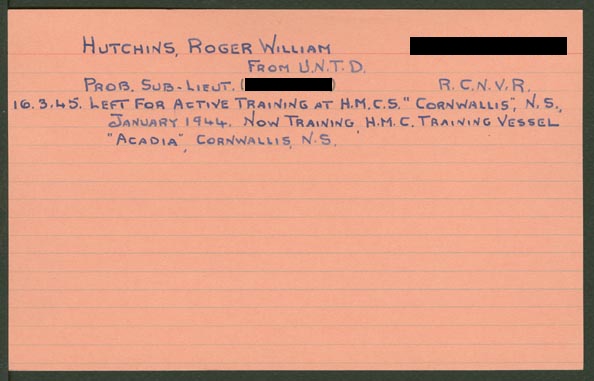 HUTCHINS, ROGER WILLIAM
FROM U.N.T.D.
PROB. SUB-LIEUT. ( ) R.C.N.V.R.
16.3.45. LEFT FOR ACTIVE TRAINING AT H.M.C.S. "CORNWALLIS", N.S.,
JANUARY 1944. NOW TRAINING, H.M.C. TRAINING VESSEL
"ACADIA", CORNWALLIS, N.S.